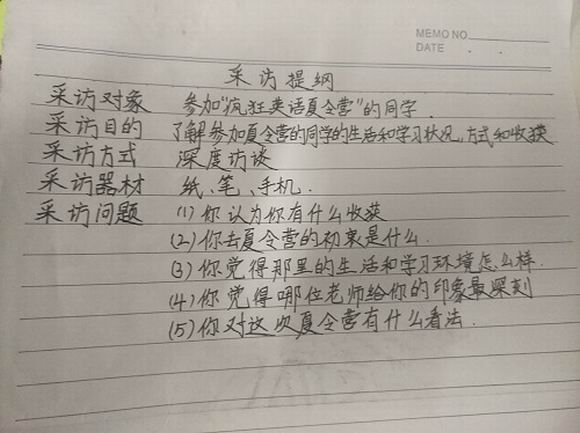 MEMO NO
DATE . .
采访提纲
采访对象 参加"疯狂英语夏令营"的同学.
采访目的 了解参加夏令营的同学的生活和学习状况,方式和收获
采访方式 深度访谈
采访器材 纸、笔、手机.
采访问题 (1)你认为你有什么收获
(2)你去夏令营的初衷是什么.
(3)你觉得那里的生活和学习环境怎么样.
(4)你觉得哪位老师给你的印象最深刻
(5)你对这次夏令营有什么看法.